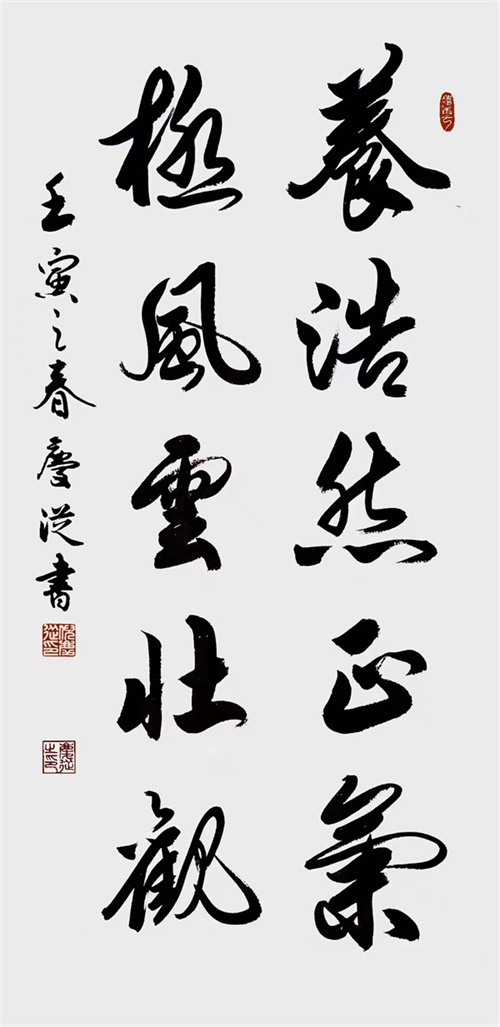 養浩然正氣
極風雲壯觀
壬寅之春慶從書